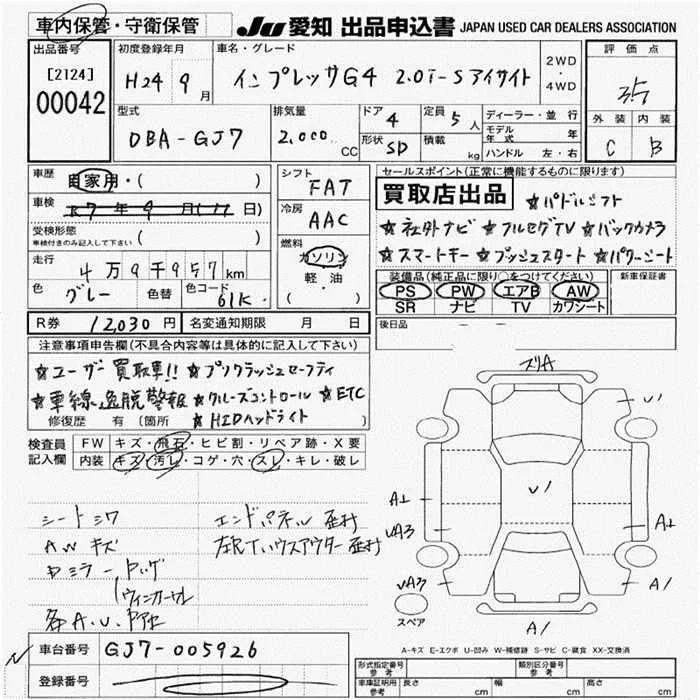 車内保管・守衛保管 JU 愛知 出品申込書 JAPAN USED CAR DEALERS ASSOCIATION
出品番号 初度登録年月 車名・グレード 2WD ・ 4WD 評価点
[2124] 00042 H24 9月 インプレッサG4 2.0i-Sアイサイト 3.5
型式 排気量 ドア 4 定員 5人 ディーラー・並行 外装 内装
DBA-GJ7 2,000 CC 形状 SD 積載 kg モデル年式 年 C B
ハンドル 左・右
車歴 自家用・( ) シフト FAT セールスポイント(正常に機能するものに限ります)
車検 R7年9月(11日) 冷房 AAC 買取店出品 ☆パドルシフト
受検形態 車検付きのみ記入して下さい ( ) ☆社外ナビ ☆フルセグTV ☆バックカメラ
走行 4万9千957km 燃料 ガソリン 軽・油 ・( ) ☆スマートキー ☆プッシュスタート ☆パワーシート
色 グレー 色替 色コード 61K 装備品(純正品に限り○をつけてください) 新車保証書
PS PW エアB AW
SR ナビ TV カワシート
R券 12,030円 名変通知期限 月 日 後日品
注意事項申告欄(不具合内容等は具体的に記入して下さい)
☆ユーザー買取車!! ☆プリクラッシュセーフティ
☆車線逸脱警報 ☆クルーズコントロール ☆ETC
修復歴 有 (箇所 ☆HIDヘッドライト
検査員記入欄 FW キズ・飛石・ヒビ割・リペア跡・X要
内装 キズ・汚レ・コゲ・穴・スレ・キレ・破レ
シートシワ エンドパネル歪ミ
AWキズ
ウィンカーカセル
スリA
U1
U1
A1
UA3
A1
UA7
A1
A1
スペア
A-キズ E-エクボ U-凹み W-補修跡 S-サビ C-腐食 XX-交換済
車台番号 GJ7-005926
登録番号
形式指定番号 参考 類別区分番号 参考
車庫証明用 参考 長さ cm 幅 cm 高さ cm